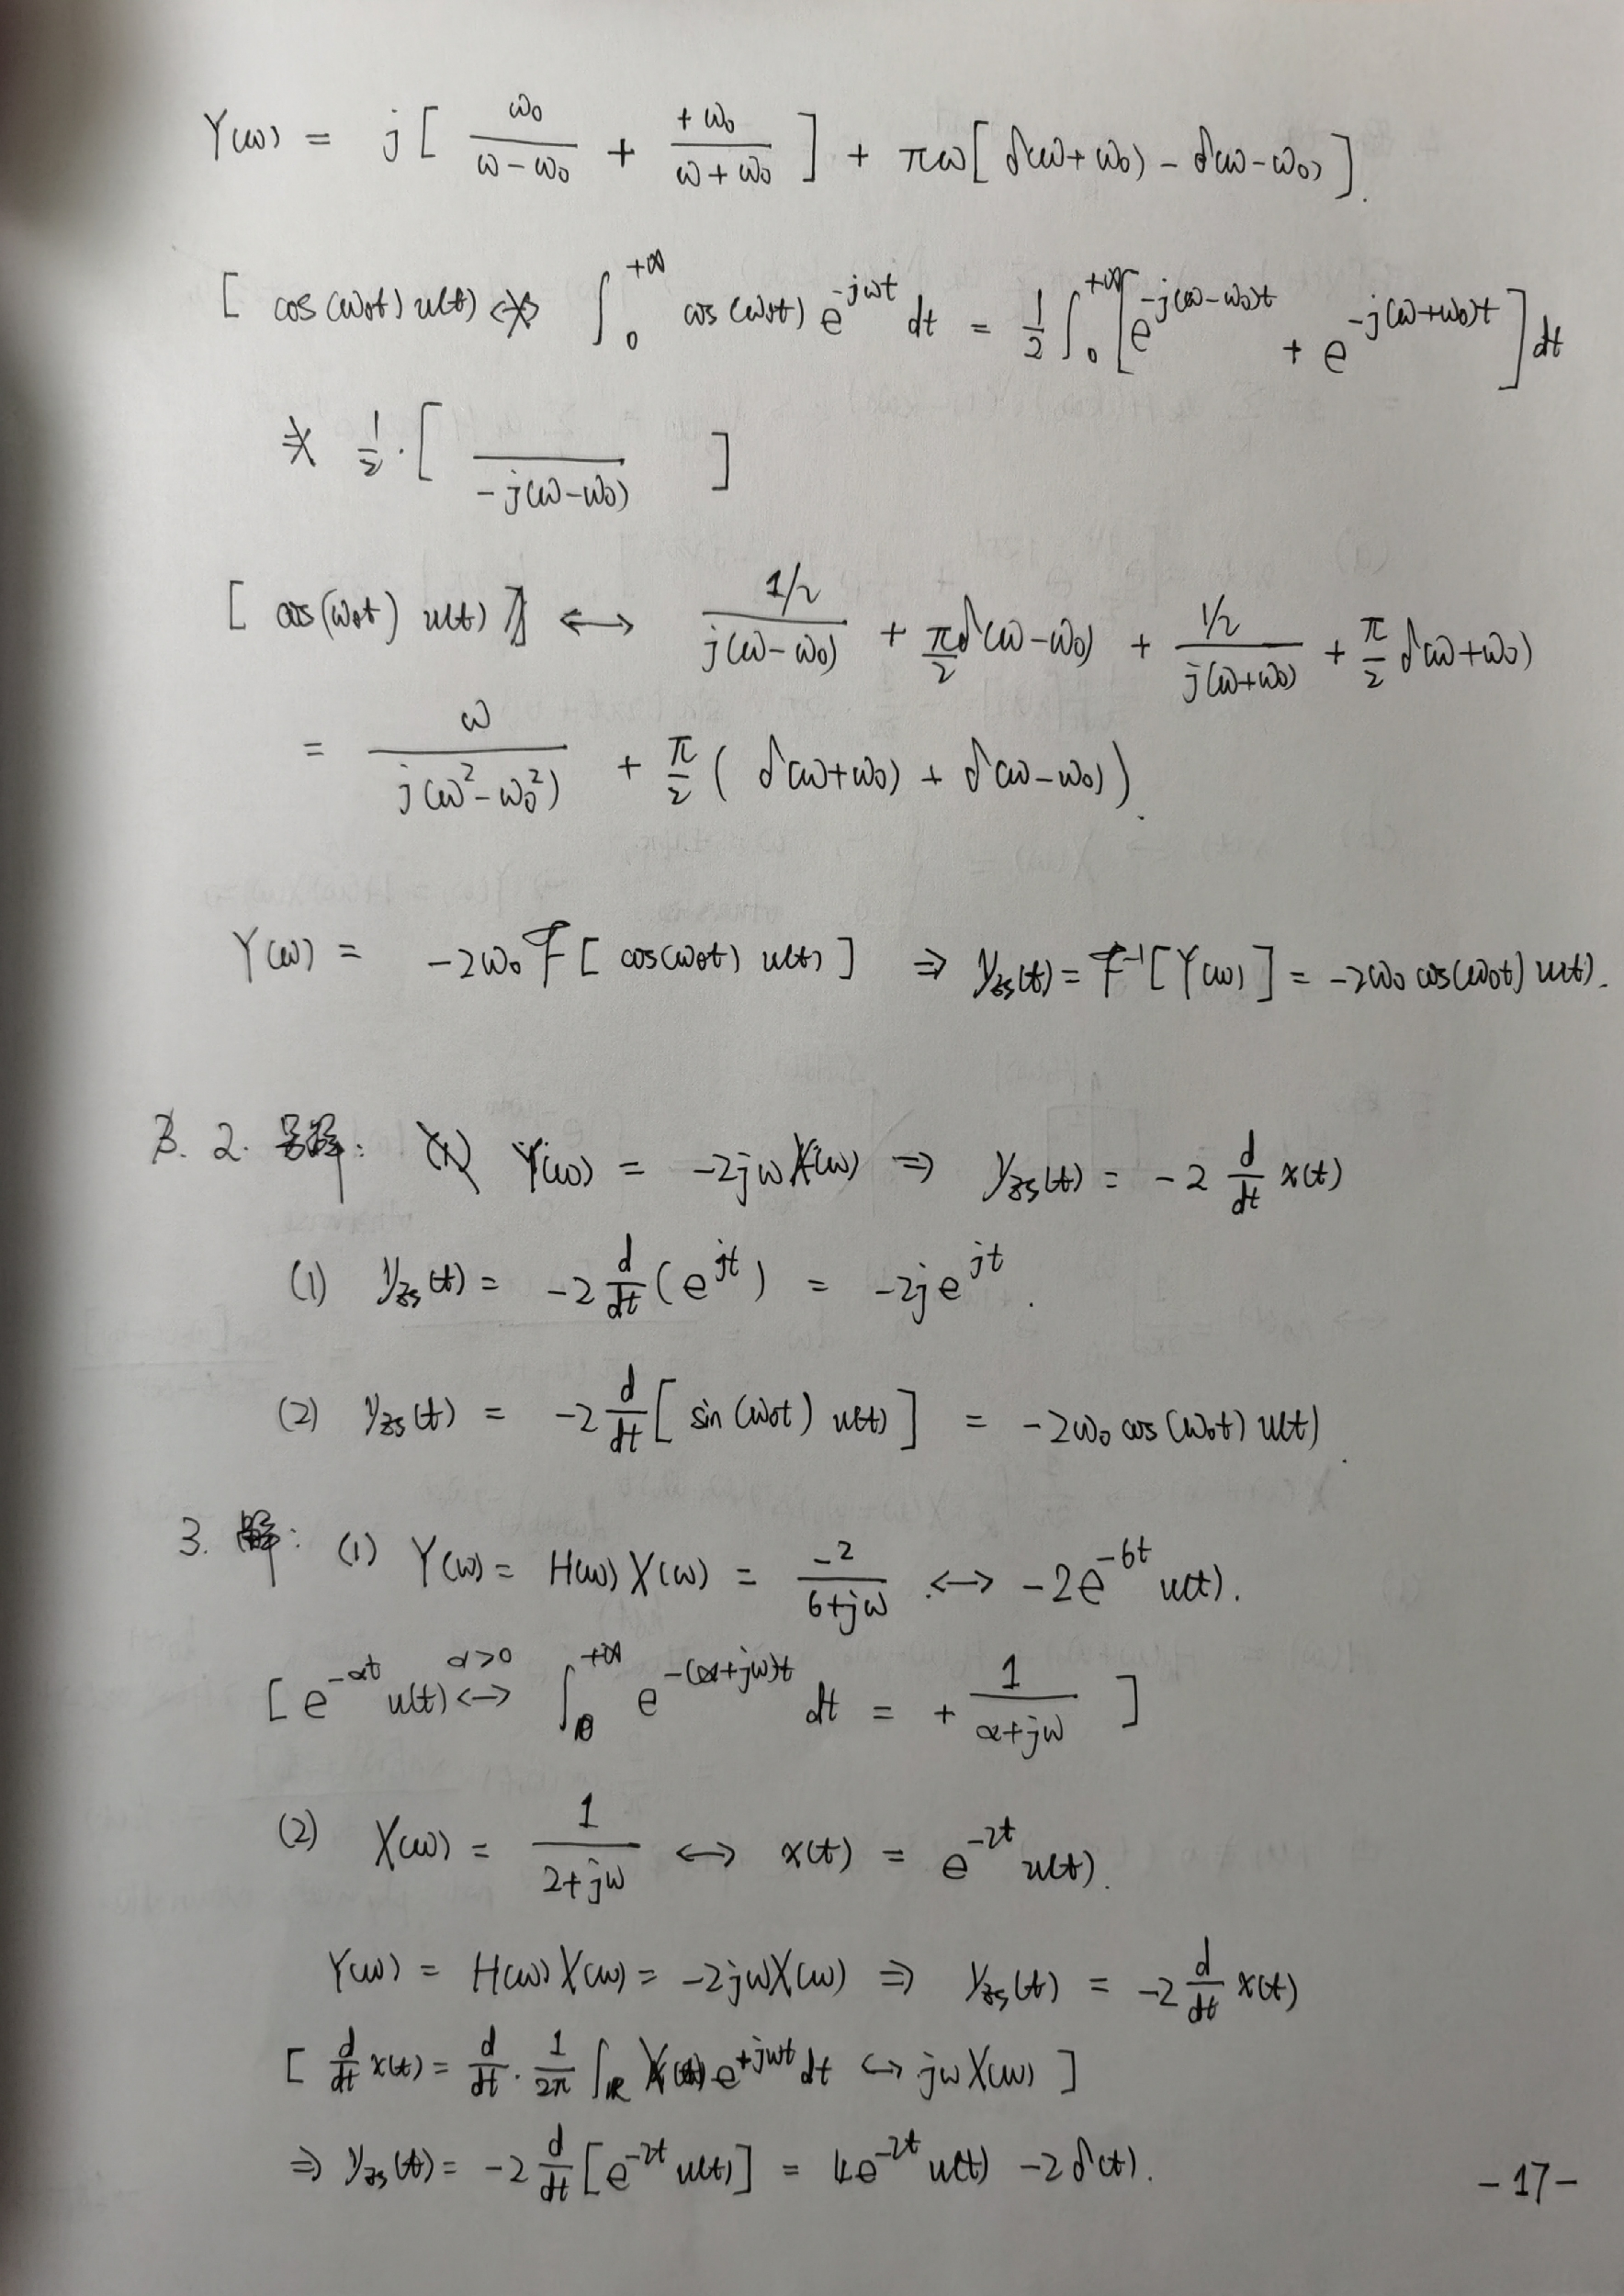 Y(ω) = j [ ω₀/(ω-ω₀) + +ω₀/(ω+ω₀) ] + πω [ δ(ω+ω₀) - δ(ω-ω₀) ].
[ cos(ω₀t) u(t) ↔ ∫₀^{+∞} cos(ω₀t) e^{-jωt} dt = 1/2 ∫₀^{+∞} [ e^{-j(ω-ω₀)t} + e^{-j(ω+ω₀)t} ] dt
= 1/2 · [ /(-j(ω-ω₀)) ]
[ cos(ω₀t) u(t) ] ↔ (1/2)/(j(ω-ω₀)) + π/2 δ(ω-ω₀) + (1/2)/(j(ω+ω₀)) + π/2 δ(ω+ω₀)
= ω/(j(ω²-ω₀²)) + π/2 ( δ(ω+ω₀) + δ(ω-ω₀) ).
Y(ω) = -2ω₀ F [ cos(ω₀t) u(t) ] ⇒ y_{zs}(t) = F^{-1} [ Y(ω) ] = -2ω₀ cos(ω₀t) u(t).
2. 另解: Y(ω) = -2jω X(ω) ⇒ y_{zs}(t) = -2 d/dt x(t)
(1) y_{zs}(t) = -2 d/dt (e^{jt}) = -2j e^{jt}.
(2) y_{zs}(t) = -2 d/dt [ sin(ω₀t) u(t) ] = -2ω₀ cos(ω₀t) u(t).
3. 解: (1) Y(ω) = H(ω) X(ω) = -2/(6+jω) ↔ -2e^{-6t} u(t).
[ e^{-αt} u(t) ↔^{α>0} ∫₀^{+∞} e^{-(α+jω)t} dt = + 1/(α+jω) ]
(2) X(ω) = 1/(2+jω) ↔ x(t) = e^{-2t} u(t).
Y(ω) = H(ω) X(ω) = -2jω X(ω) ⇒ y_{zs}(t) = -2 d/dt x(t)
[ d/dt x(t) = d/dt · 1/2π ∫_ℝ X(ω) e^{+jωt} dt ↔ jω X(ω) ]
⇒ y_{zs}(t) = -2 d/dt [ e^{-2t} u(t) ] = 4e^{-2t} u(t) - 2δ(t).
-17-